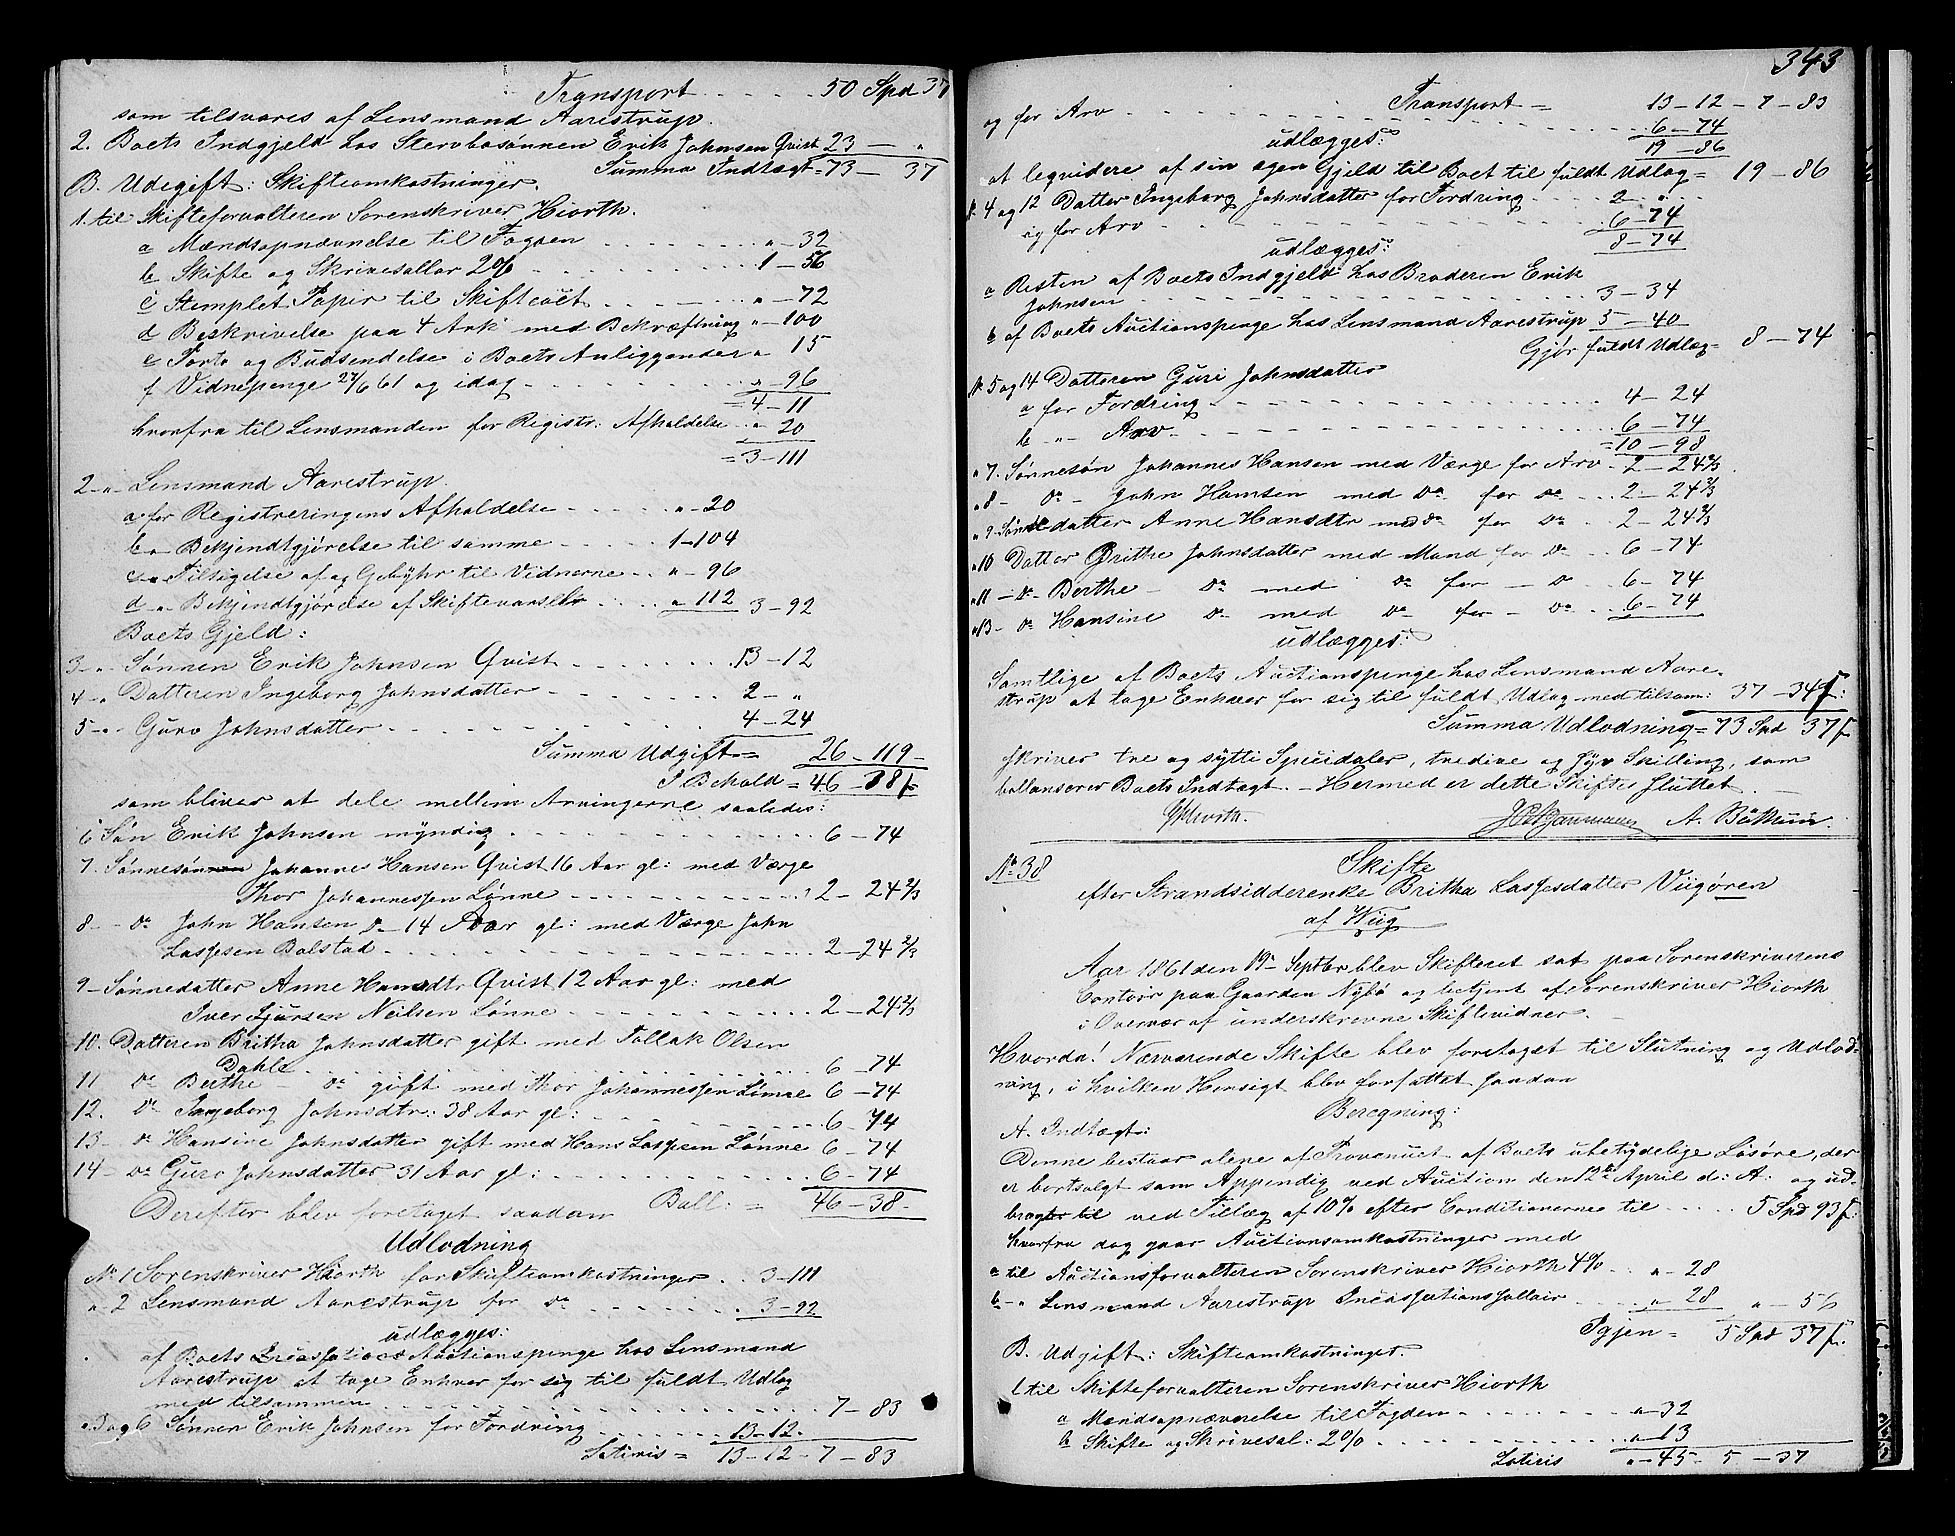 Transport . . . . . 50 Spd 37
som tilsvares af Lensmand Aarestrup.
2. Boets Indgjeld hos Stervbosønnen Erik Johnsen Qvist 23 — "
Summa Indtægt = 73 — 37
B. Udgift: Skifteomkostninger.
1. til Skifteforvalteren Sorenskriver Hiorth.
a Mændsopnævnelse til Fogden . . . . . " — 32
b Skifte og Skrivesallar 2% . . . . . 1 — 56
c Stemplet Papir til Skiftet . . . . . " — 72
d Beskrivelse paa 4 Ark med Bekræftning " — 100
e Porto og Budsendelse i Boets Anliggender " 15
f Vidnepenge 27/6 61 og idag . . . . . " — 96
= 4 — 11
hvorfra til Lensmanden for Registr: Afholdelse " 20
= 3 — 111
2 — " Lensmand Aarestrup.
a for Registreringens Afholdelse . . . . . " — 20
b " Bekjendtgjørelse til samme . . . . . 1 — 104
c " Tilsigelse af og Gebyhr til Vidnerne . . " — 96
d " Bekjendtgjørelse af Skiftevarsel . . . . " 112 3 — 92
Boets Gjeld:
3 — " Sønnen Erik Johnsen Qvist . . . . . 13 — 12
4 — " Datteren Ingeborg Johnsdatter . . . . . 2 — "
5 — " Guro Johnsdatter . . . . . 4 — 24
Summa Udgift = 26 — 119 —
I Behold = 46 — 38 ß
som bliver at dele mellem Arvingerne saaledes:
6 Søn Erik Johnsen myndig . . . . . 6 — 74
7. Sønnesøn Johannes Hansen Qvist 16 Aar gl: med Værge
Thor Johannessen Lønne . . . . . 2 — 24 2/3
8 — do John Hansen do 14 Aar gl: med Værge John
Lassesen Bolstad . . . . . 2 — 24 2/3
9 — Sønnedatter Anne Hansdtr Qvist 12 Aar gl: med
Iver Sjursen Neilsen Lønne . . . . . 2 — 24 2/3
10. Datteren Britha Johnsdatter gift med Tollak Olsen
Dahle . . . . . 6 — 74
11 do Berthe do gift med Thor Johannessen Lønne 6 — 74
12. do Ingeborg Johnsdtr: 38 Aar gl: . . . . . 6 — 74
13 — do Hansine Johnsdatter gift med Hans Lassesen Lønne 6 — 74
14 — do Guro Johnsdatter 31 Aar gl: . . . . . 6 — 74
Ball: = 46 — 38 —
Derefter blev foretaget saadan
Udlodning
No 1 Sorenskriver Hiorth for Skifteomkostninger . . 3 — 111
" 2 Lensmand Aarestrup for do . . . . . 3 — 92
udlægges:
af Boets Auctionspenge hos Lensmand
Aarestrup at tage Enhver for sig til fuldt Udlæg
med tilsammen . . . . . 7 — 83
" 3 og 6 Sønnen Erik Johnsen for Fordring . . . . . 13 — 12.
Lateris = 13 — 12 — 7 — 83
343
Transport = 13 — 12 — 7 — 83
og for Arv . . . . . 6 — 74
udlægges: 19 — 86
at leqvidere af sin egen Gjeld til Boet til fuldt Udlæg = 19 — 86
No 4 og 12 Datter Ingeborg Johnsdatter for Fordring . . . . 2 — "
og for Arv . . . . . 6 — 74
udlægges: 8 — 74
a Resten af Boets Indgjeld hos Broderen Erik
Johnsen . . . . . 3 — 34
b af Boets Auctionspenge hos Lensmand Aarestrup 5 — 40
Gjør fuldt Udlæg = 8 — 74
No 5 og 14 Datteren Guri Johnsdatter
a for Fordring . . . . . 4 — 24
b " Arv . . . . . 6 — 74
= 10 — 98
" 7. Sønnesøn Johannes Hansen med Værge for Arv . 2 — 24 2/3
" 8 — do — John Hansen med do for do . . . 2 — 24 2/3
" 9 Sønnedatter Anne Hansdtr med do for do . . 2 — 24 2/3
" 10 Datter Brithe Johnsdatter med Mand for do . . 6 — 74
" 11 — do Berthe — do med do for — do . . 6 — 74
" 13 — do Hansine do med do for — do . . 6 — 74
udlægges:
Samtlige af Boets Auctionspenge hos Lensmand Aare-
strup at tage Enhver for sig til fuldt Udlæg med tilsam: 37 — 34 ß:
Summa Udlodning = 73 Spd 37 ß
skriver tre og sytti Speciedaler, tredive og syv Skilling, som
ballancerer Boets Indtægt. — Hermed er dette Skiftes sluttet.
Hiorth.
No 38
Skifte
efter Strandsidderenke Britha Lassesdatter Viigøren
af Wiig
Aar 1861 den 19 Septbr blev Skifteret sat paa Sorenskriverens
Contoir paa Gaarden Nybø og betjent af Sorenskriver Hiorth
i Overvær af underskrevne Skiftevidner. —
Hvorda! Nærværende Skifte blev foretaget til Slutning og Udlod-
ning, i hvilken Hensigt blev forfattet saadan
Beregning:
A. Indtægt:
Denne bestaar alene af Provenuet af Boets ubetydelige Løsøre, der
er bortsolgt som Appendix ved Auction den 12te April d: A: og ud-
bragte til ved Tillæg af 10% efter Conditionerne til . . . . . 5 Spd 93 ß.
hvorfra dog gaar Auctionsomkostninger med
a til Auctionsforvalteren Sorenskriver Hiorth 4% . . " — 28
b — " Lensmand Aarestrup Incassationssallair . . . . " — 28 " — 56
Igjen = 5 Spd 37 ß.
B. Udgift: Skifteomkostninger.
1 til Skifteforvalteren Sorenskriver Hiorth
a Mændsopnævnelse til Fogden . . . . . " — 32
b Skifte og Skrivesal: 2% . . . . . " 13
Lateris " — 45 — 5 — 37